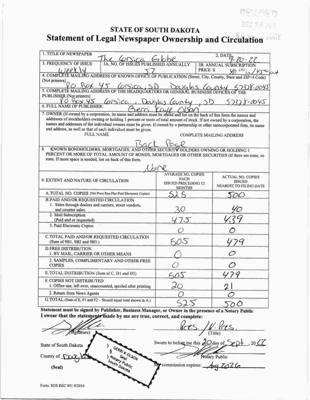 STATE OF SOUTH DAKOTA
Statement of Legal Newspaper Ownership and Circulation
1. TITLE OF NEWSPAPER
The Corsica Globe
2. DATE
9-20-22
3. FREQUENCY OF ISSUE
Weekly
3A. NO. OF ISSUES PUBLISHED ANNUALLY
3B. ANNUAL SUBSCRIPTION PRICE $
4. COMPLETE MAILING ADDRESS OF KNOWN OFFICE OF PUBLICATION (Street, City, County, State and ZIP+4 Code) (Not printers)
PO Box 45 Corsica, SD Douglas County 57328-0045
5. COMPLETE MAILING ADDRESS OF THE HEADQUARTERS OR GENERAL BUSINESS OFFICES OF THE PUBLISHER (Not printers)
PO Box 45 Corsica, Douglas County, SD 57328-0045
6. FULL NAME OF PUBLISHER:
7. OWNER (If owned by a corporation, its name and address must be stated and list on the back of this form the names and addresses of stockholders owning or holding 1 percent or more of total amount of stock. If not owned by a corporation, the names and addresses of the individual owners must be given. If owned by a partnership or other unincorporated firm, its name and address, as well as that of each individual must be given.
FULL NAME
COMPLETE MAILING ADDRESS
Back Page
8. KNOWN BONDHOLDERS, MORTGAGEES, AND OTHER SECURITY HOLDERS OWNING OR HOLDING 1 PERCENT OR MORE OF TOTAL AMOUNT OF BONDS, MORTGAGES OR OTHER SECURITIES (If there are none, so state. If more space is needed, list on back of this form.
None
9. EXTENT AND NATURE OF CIRCULATION
AVERAGE NO. COPIES EACH ISSUED PRECEDING 12 MONTHS
ACTUAL NO. COPIES ISSUED NEAREST TO FILING DATE
A. TOTAL NO. COPIES
525
500
B. PAID AND/OR REQUESTED CIRCULATION
1. Sales through dealers and carriers, street vendors, and counter sales.
30
40
2. Mail Subscription (Paid and or requested)
475
439
3. Paid Electronic Copies
0
0
C. TOTAL PAID AND/OR REQUESTED CIRCULATION (Sum of 9B1, 9B2 and 9B3.)
505
479
D. FREE DISTRIBUTION
1. BY MAIL, CARRIER OR OTHER MEANS
0
0
2. SAMPLES, COMPLIMENTARY AND OTHER FREE COPIES
0
0
E. TOTAL DISTRIBUTION (Sum of C, D1 and D2)
505
479
F. COPIES NOT DISTRIBUTED
1. Office use, left over, unaccounted, spoiled after printing
20
21
2. Return from News Agents
0
0
G. TOTAL (Sum of E, F1 and F2 - Should equal total shown in A.)
525
500
Statement must be signed by Publisher, Business Manager, or Owner in the presence of a Notary Public
I swear that the statements made by me are true, correct, and complete:
(Signature)
(Title)
State of South Dakota
County of Douglas
(Seal)
Sworn to before me this 20 day of Sept, 20 22
Notary Public
commission expires: Aug 2026
Notary Public
South Dakota